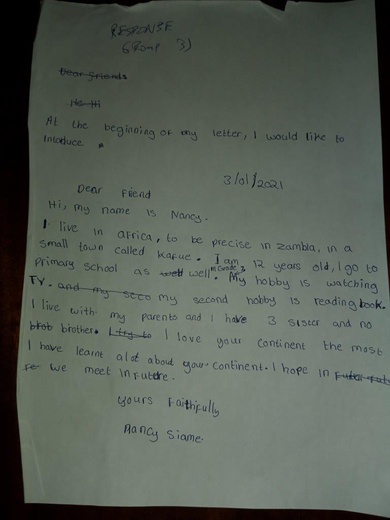 RESPONSE
Group 3)
Dear friends
He Hi
At the beginning of my letter, I would like to
Intoduce
3/01/2021
Dear Friend
Hi, my name is Nancy.
I live in africa, to be precise in zambia, in a
small town called Kafue. I am 12 years old, I go to
primary school as well. in Grade 7 My hobby is watching
TV. and my seco my second hobby is reading book.
I live with my parents and I have 3 sister and no
brob brother. I try to I love your continent the most
I have learnt a lot about your continent. I hope in
we meet in future.
yours Faithfully
Nancy Siame.